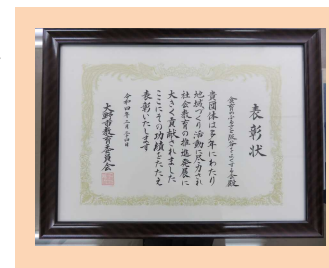 表彰状
貴団体は多年にわたり
地域づくり活動に尽力され
社会教育の推進発展に
大きく貢献されました
ここにその功績をたたえ
表彰いたします
令和四年二月二十四日
大野市教育委員会